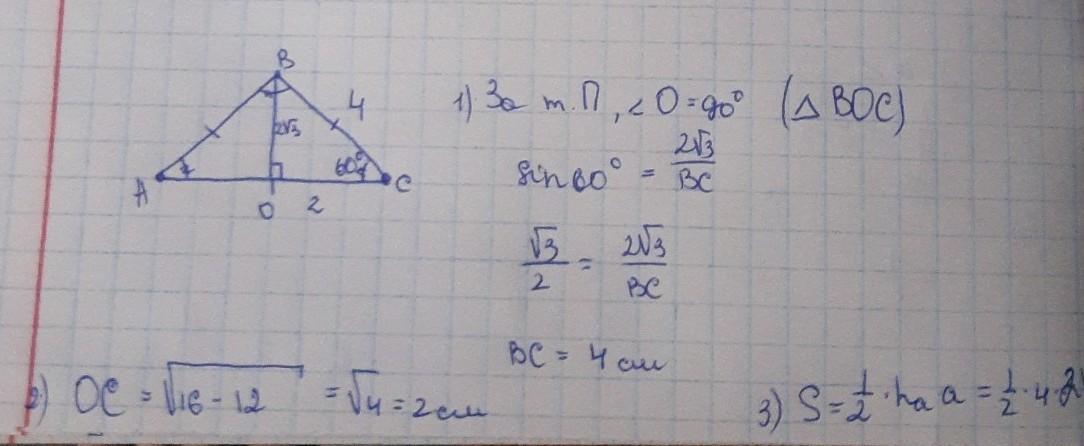 B
4
2√3
60°
A
O
2
C
1) За т.П, ∠O=90° (△BOC)
sin60° = 2√3/BC
√3/2 = 2√3/BC
BC = 4 см
2) OC = √16-12 = √4 = 2 см
3) S = 1/2 · hₐ a = 1/2 · 4 · 2